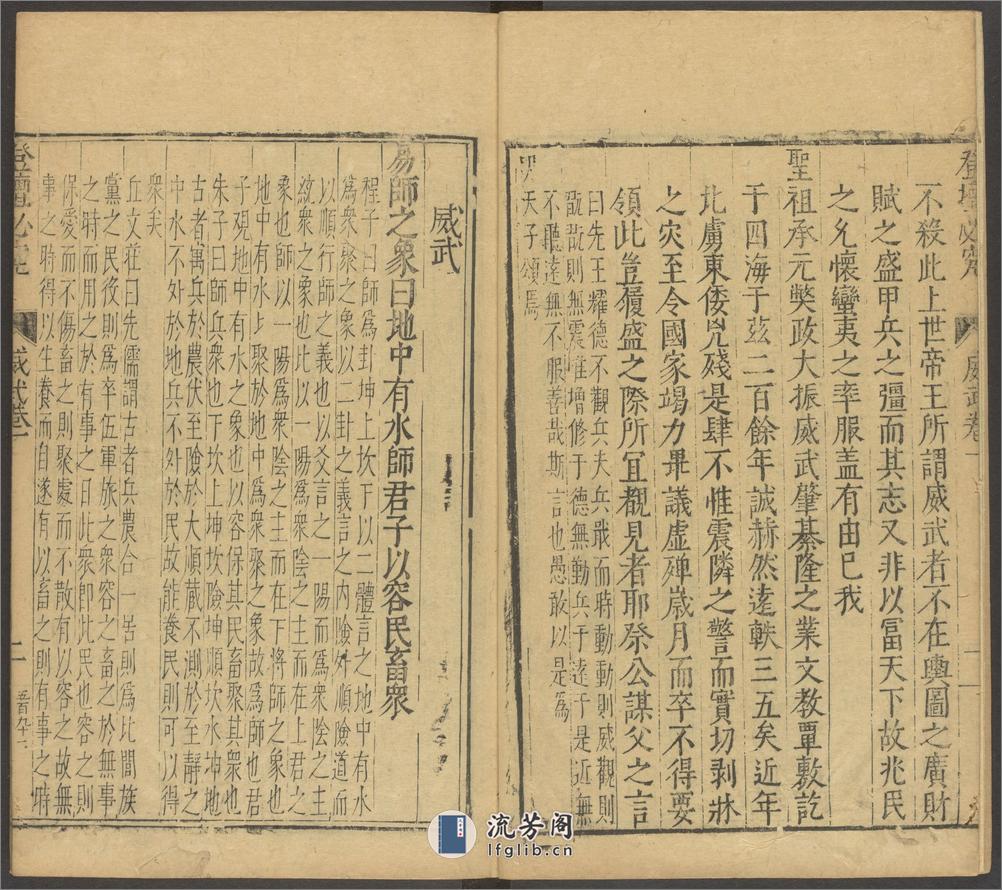 不殺此上世帝王所謂威武者不在輿圖之廣財
賦之盛甲兵之彊而其志又非以冨天下故兆民
之允懷蠻夷之率服盖有由已我
聖祖承元獘政大振威武肇基隆之業文教覃敷訖
于四海于茲二百餘年誠赫然逺軼三五矣近年
北虜東倭兇殘是肆不惟震隣之警而實切剥牀
之灾至令國家竭力畢議虛殫歳月而卒不得要
領此豈履盛之際所冝覩見者耶祭公謀父之言
曰先王耀德不觀兵夫兵戢而時動動則威觀則
翫翫則無震惟增修于德無勤兵于逺于是近無
不聽逺無不服善哉斯言也愚敢以是為
明天子頌焉
威武
易師之象曰地中有水師君子以容民畜衆
程子曰師爲卦坤上坎下以二體言之地中有水
爲衆聚之象以二卦之義言之内險外順險道而
以順行師之義也以爻言之一陽而爲衆隂之主
綂衆之象也比以一陽爲衆隂之主而在上君之
象也師以一陽爲衆隂之主而在下將師之象也
地中有水水聚於地中爲衆聚之象故爲師也君
子觀地中有水之象也以容保其民畜聚其衆也
朱子曰師兵衆也下坎上坤坎險坤順坎水坤地
古者寓兵於農伏至險於大順蔵不測於至靜之
中水不外於地兵不外於民故能養民則可以得
衆矣
丘文莊曰先儒謂古者兵農合一居則爲比閭族
黨之民役則爲卒伍軍旅之衆容之畜之於無事
之時而用之於有事之日此衆即此民也容之則
保愛而不傷畜之則聚處而不散有以容之故無
事之時得以生養而自遂有以畜之則有事之時
登壇必究
威武卷一
二
五百九十二
登壇必究
威武卷一
一
流芳阁
lfglib.cn